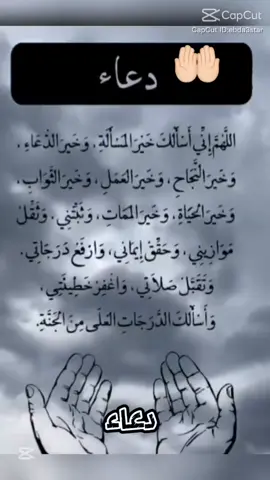 CapCut
CapCut ID:ehda3star
دعاء
اللَّهُمَّ إِنِّي أَسْأَلُكَ خَيْرَ المَسْأَلَةِ، وَخَيرَ الدُّعَاءِ،
وَخَيرَ النَّجَاحِ، وَخَيرَ العَمَلِ، وَخَيرَ الثَّوَابِ،
وَخَيرَ الحَيَاةِ، وَخَيرَ المَمَاتِ، وَثَبِّتْنِي، وَثَقِّلْ
مَوَازِينِي، وَحَقِّقْ إِيمَانِي، وَارْفَعْ دَرَجَاتِي،
وَتَقَبَّلْ صَلاَتِي، وَاغْفِرْ خَطِيئَتِي،
وَأَسْأَلُكَ الدَّرَجَاتِ العُلَى مِنَ الجَنَّةِ.
دعاء
CapCut